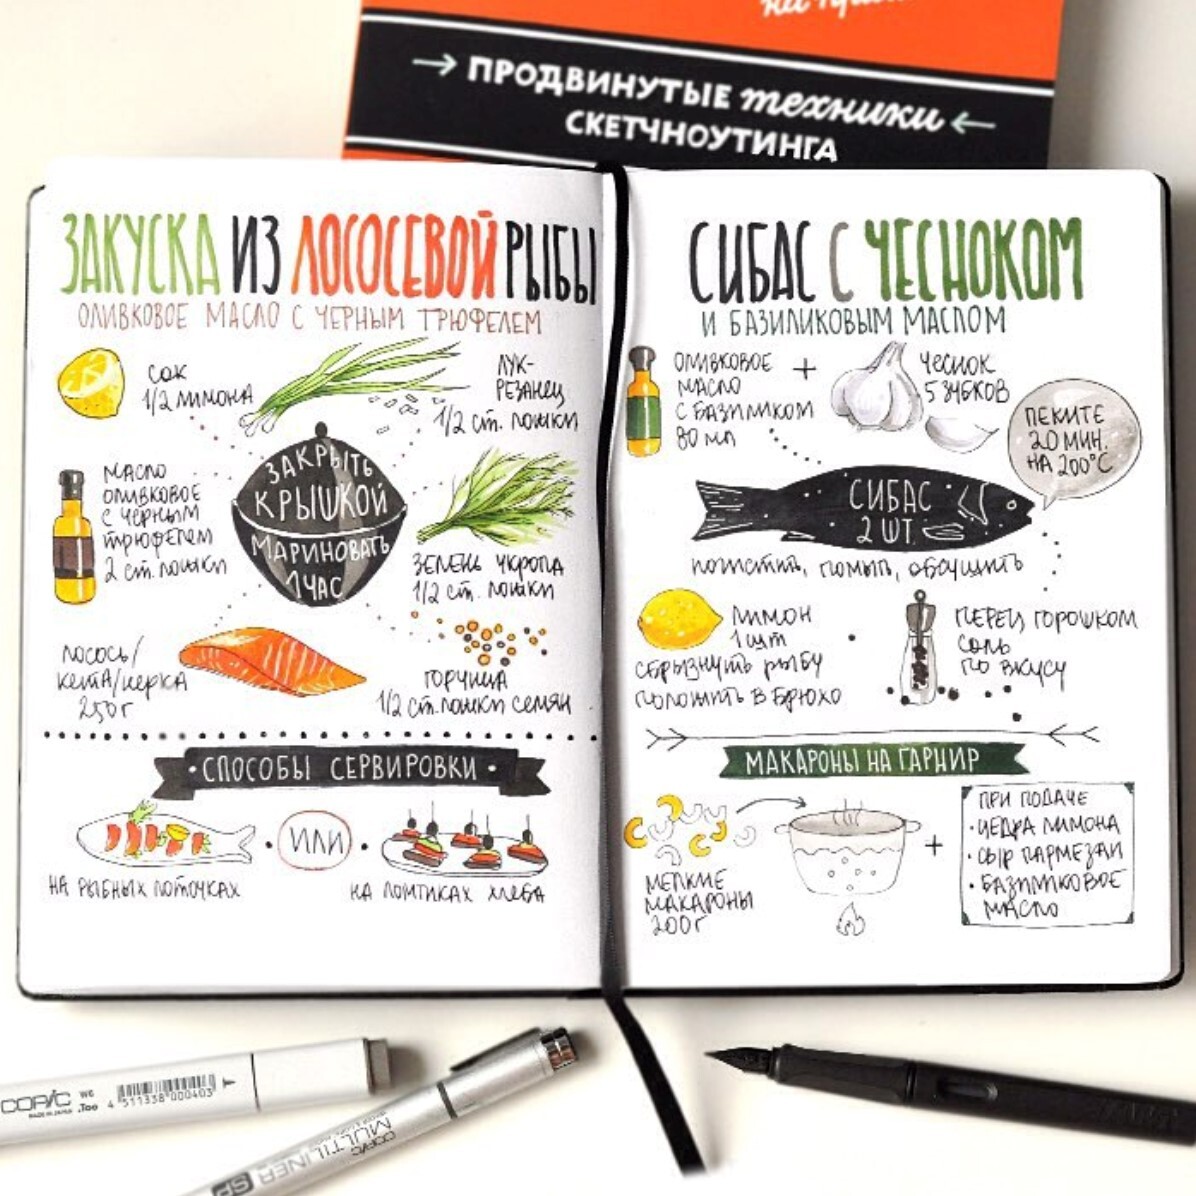 на пра
→ ПРОДВИНУТЫЕ техники ←
СКЕТЧНОУТИНГА
ЗАКУСКА ИЗ ЛОСОСЕВОЙ РЫБЫ
ОЛИВКОВОЕ МАСЛО С ЧЕРНЫМ ТРЮФЕЛЕМ
СОК
1/2 ЛИМОНА
ЛУК-
РЕЗАНЕЦ
1/2 СТ. ЛОЖКИ
ЗАКРЫТЬ
КРЫШКОЙ
МАРИНОВАТЬ
1 ЧАС
МАСЛО
ОЛИВКОВОЕ
С ЧЕРНЫМ
ТРЮФЕЛЕМ
2 СТ. ЛОЖКИ
ЗЕЛЕНЬ УКРОПА
1/2 СТ. ЛОЖКИ
ЛОСОСЬ/
КЕТА/НЕРКА
250 Г
ГОРЧИЦА
1/2 СТ. ЛОЖКИ СЕМЯН
· СПОСОБЫ СЕРВИРОВКИ ·
· ИЛИ ·
НА РЫБНЫХ ЛОТОЧКАХ
НА ЛОМТИКАХ ХЛЕБА
СИБАС С ЧЕСНОКОМ
И БАЗИЛИКОВЫМ МАСЛОМ
ОЛИВКОВОЕ
МАСЛО
С БАЗИЛИКОМ
80 МЛ
+
ЧЕСНОК
5 ЗУБКОВ
ПЕКИТЕ
20 МИН.
НА 200°C
СИБАС
2 ШТ.
ПОЧИСТИТЬ, ПОМЫТЬ, ОБСУШИТЬ
ЛИМОН
1 ШТ
СБРЫЗНУТЬ РЫБУ
ПОЛОЖИТЬ В БРЮХО
ПЕРЕЦ ГОРОШКОМ
СОЛЬ
ПО ВКУСУ
МАКАРОНЫ НА ГАРНИР
МЕЛКИЕ
МАКАРОНЫ
200 Г
+
ПРИ ПОДАЧЕ
· ЦЕДРА ЛИМОНА
· СЫР ПАРМЕЗАН
· БАЗИЛИКОВОЕ
МАСЛО
COPIC W6
MADE IN JAPAN .Too 4 511338 000403 T
COPIC
MULTILINER SP